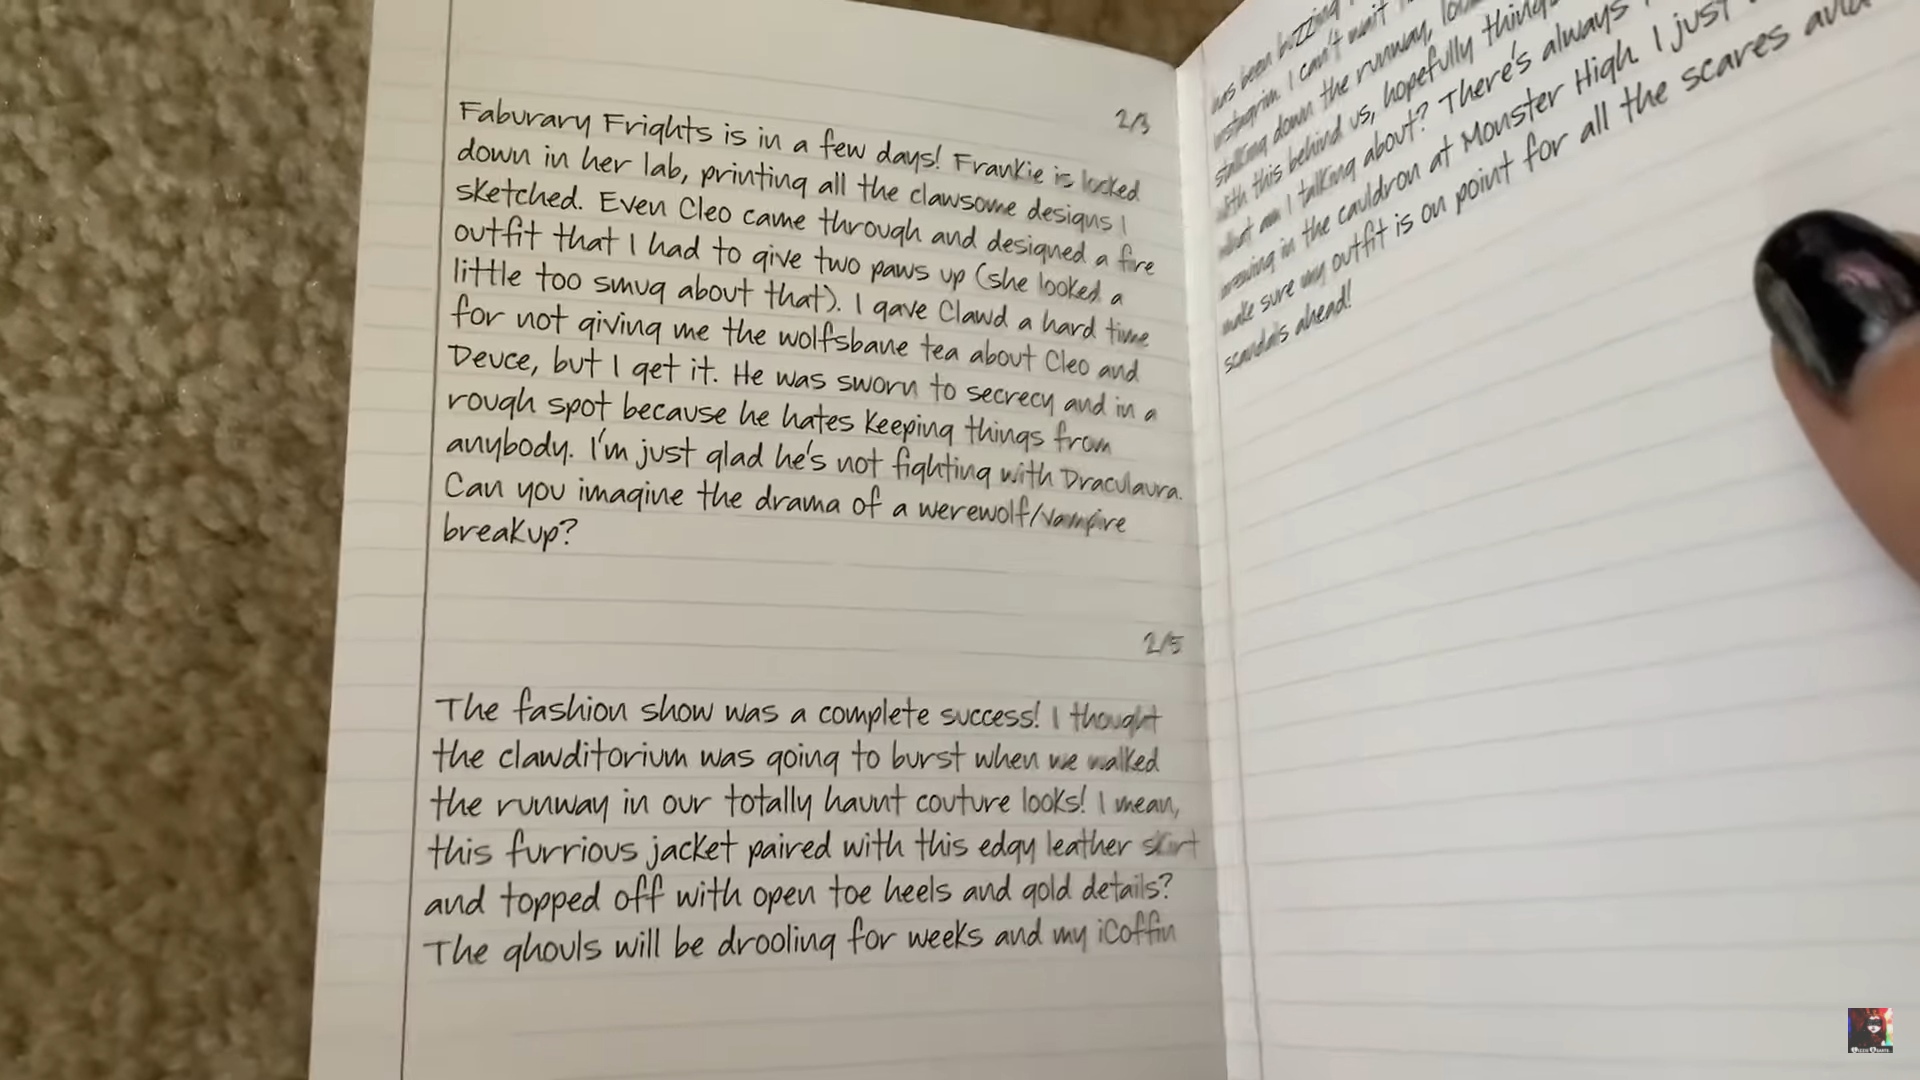 2/3
Faburary Frights is in a few days! Frankie is locked
down in her lab, printing all the clawsome designs I
sketched. Even Cleo came through and designed a fire
outfit that I had to give two paws up (she looked a
little too smug about that). I gave Clawd a hard time
for not giving me the wolfsbane tea about Cleo and
Deuce, but I get it. He was sworn to secrecy and in a
rough spot because he hates keeping things from
anybody. I'm just glad he's not fighting with Draculaura.
Can you imagine the drama of a werewolf/vampire
breakup?
2/5
The fashion show was a complete success! I thought
the clawditorium was going to burst when we walked
the runway in our totally haunt couture looks! I mean,
this furrious jacket paired with this edgy leather skirt
and topped off with open toe heels and gold details?
The ghouls will be drooling for weeks and my iCoffin
has been buzzing
Instagrim. I can't wait
stalking down the runway,
with this behind us, hopefully things
what am I talking about? There's always
brewing in the cauldron at Monster High. I just
make sure my outfit is on point for all the scares and
scandals ahead!